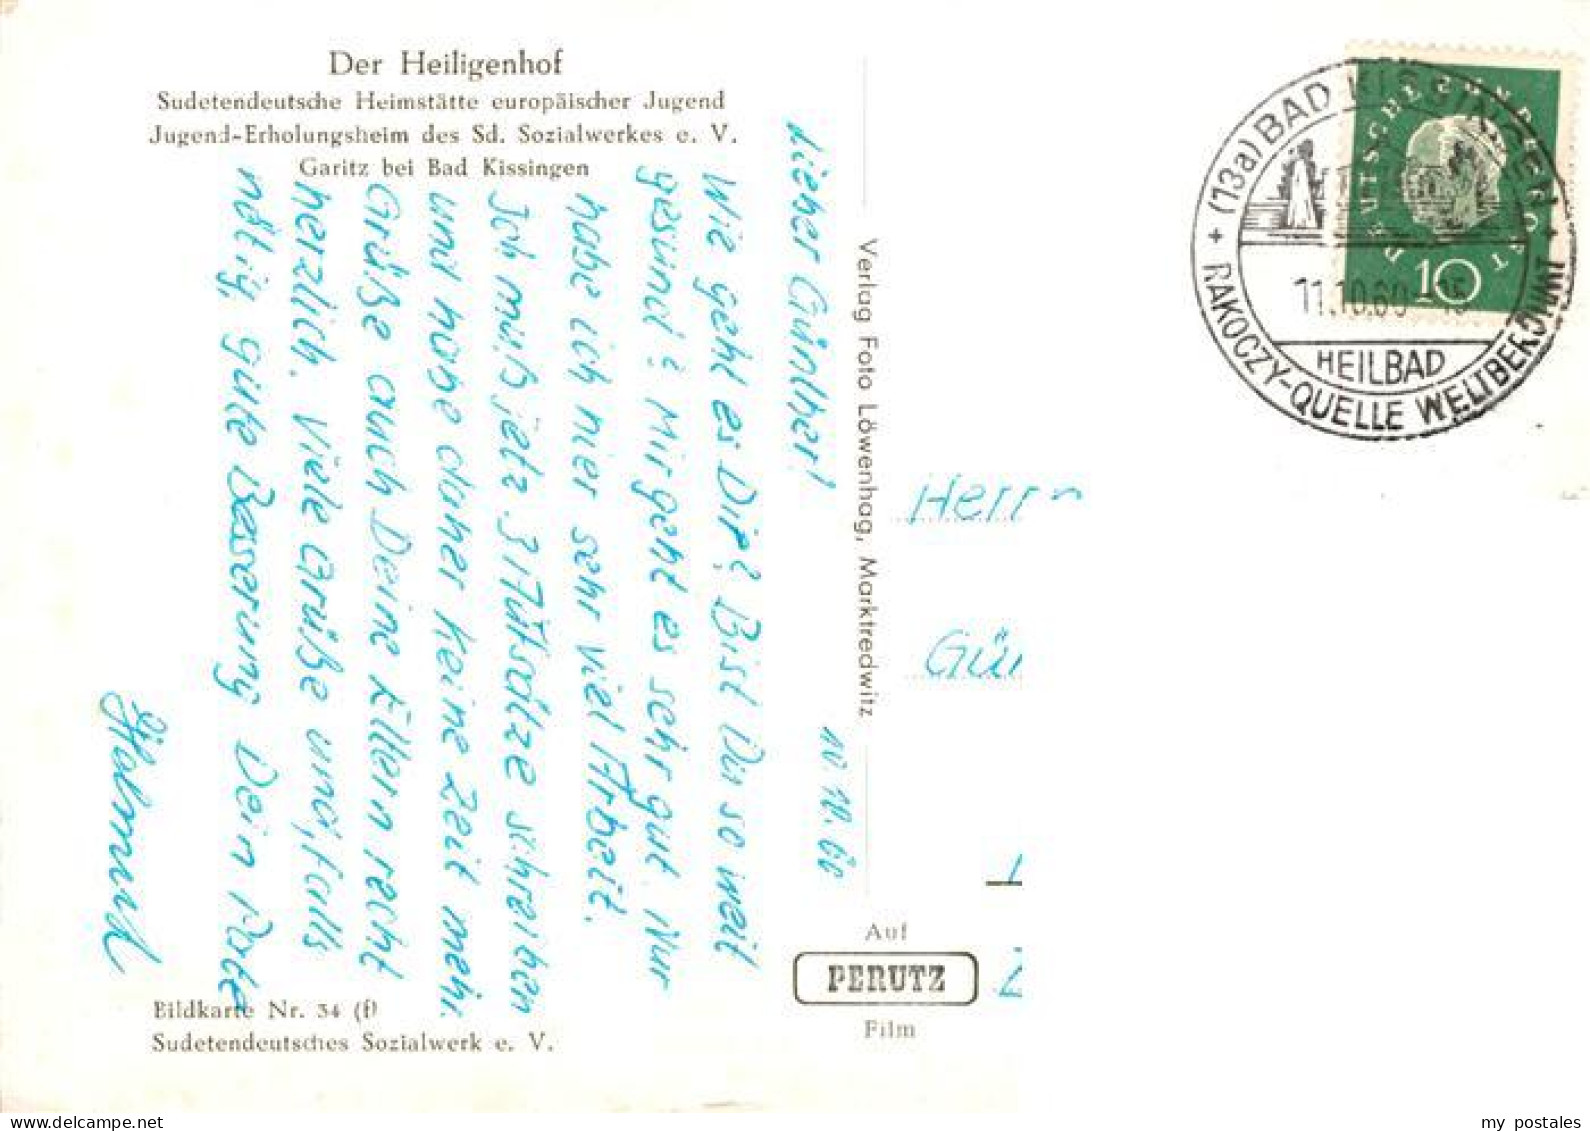 Der Heiligenhof
Sudetendeutsche Heimstätte europäischer Jugend
Jugend-Erholungsheim des Sd. Sozialwerkes e. V.
Garitz bei Bad Kissingen
10.10.60
Lieber Günther!
Wie geht es Dir? Bist Du so weit
gesund? Mir geht es sehr gut. Nur
habe ich hier sehr viel Arbeit.
Ich muß jetz. 3 Aufsätze schreiben
und habe daher keine Zeit mehr.
Grüße auch Deine Eltern recht
herzlich. Viele Grüße und, falls
nötig, gute Besserung Dein Pate
Helmut
Bildkarte Nr. 34 (f)
Sudetendeutsches Sozialwerk e. V.
Verlag Foto Löwenhag, Marktredwitz
Auf
PERUTZ
Film
Herrn
Gün
DEUTSCHE BUNDESPOST
10
(13a) BAD KISSINGEN
11.10.60-15
HEILBAD
RAKOCZY-QUELLE WELTBERÜHMT
my postales